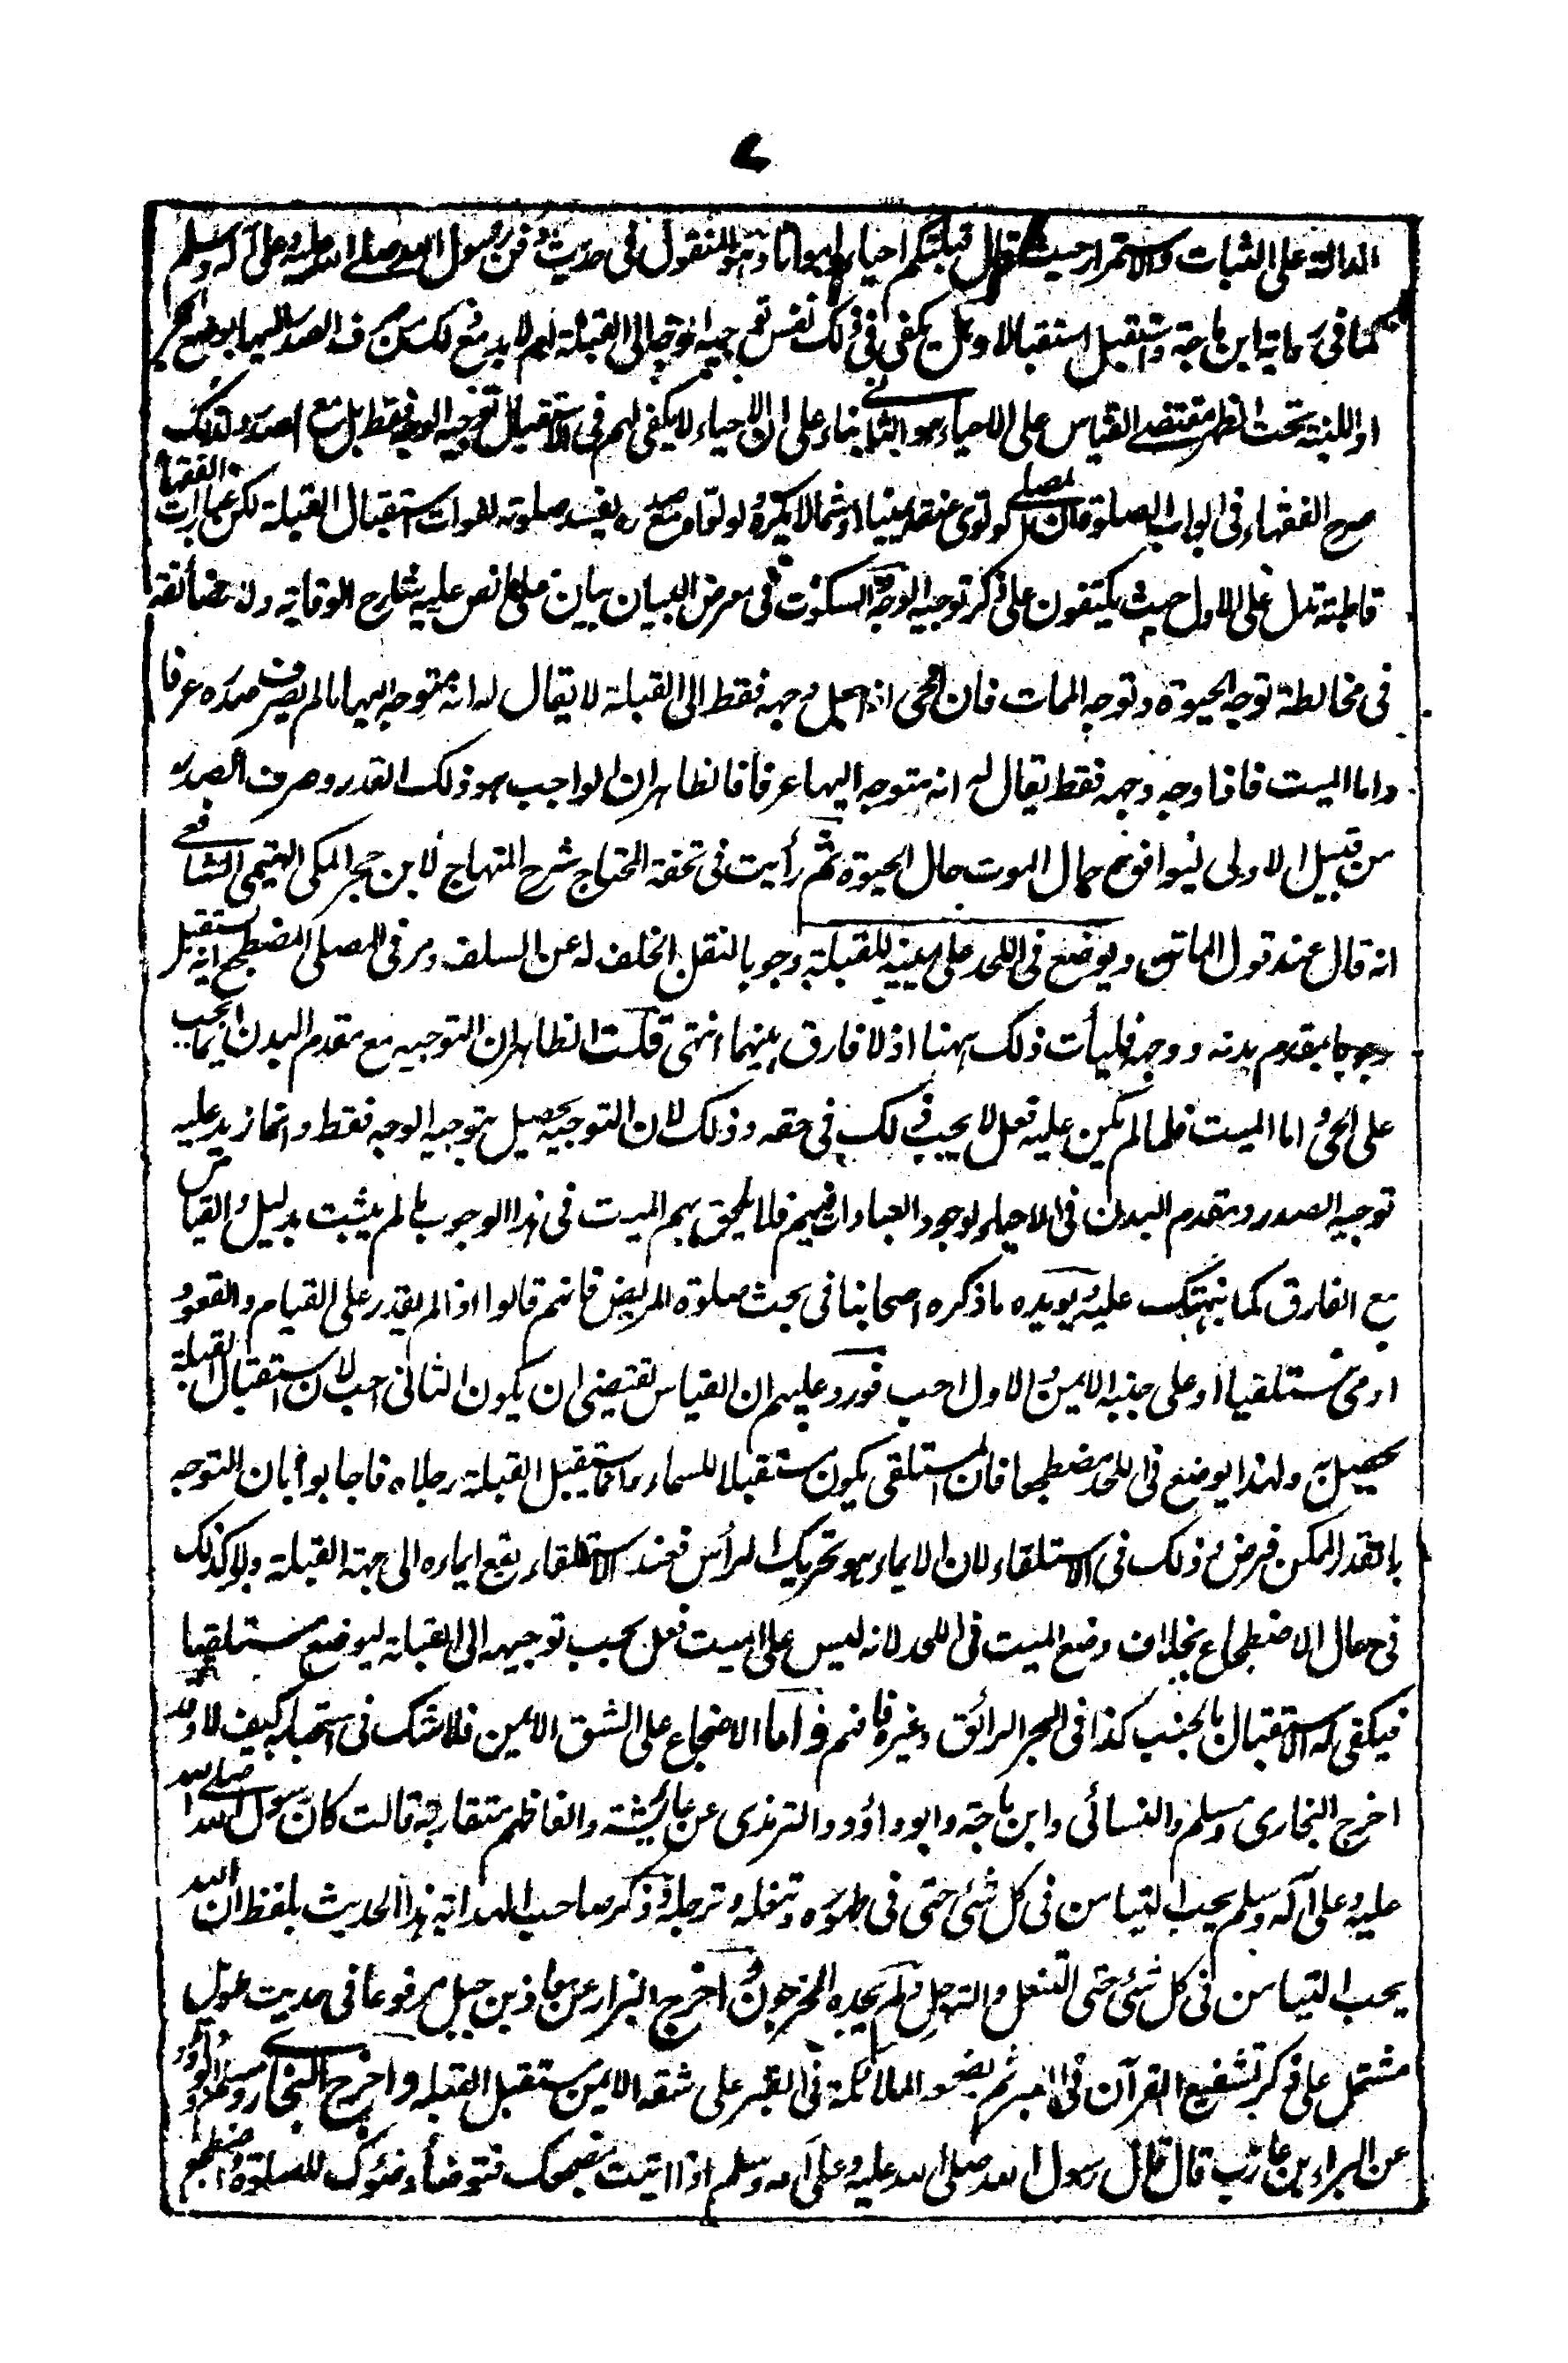 ٧
الدالة على الثبات والاستمرار حيث قال قبلتكم احياء وامواتا وهو المنقول فى حديث دفن رسول الله صلى الله عليه وعلى آله وسلم
كما فى رواية ابن ماجة واستقبل استقبالا وهل يكفى فى ذلك نفس توجيه الوجه الى القبلة ام لا بد مع ذلك من صرف الصدر اليها بوضع الحجر
او اللبنة تحت الظهر مقتضى القياس على الاحياء هو الثانى بناء على ان الاحياء لا يكفى لهم فى الاستقبال توجيه الوجه فقط بل مع الصدر ولذلك
صرح الفقهاء فى ابواب الصلوة بان المصلى لو لوى عنقه يمينا او شمالا يكره ولو لواه مع صدره يفسد صلوته لفوات استقبال القبلة لكن عبارات الفقهاء
قاطبة تدل على الاول حيث يكتفون على ذكر توجيه الوجه والسكوت فى معرض البيان بيان على ما نص عليه شارح الوقاية ولا مضائقة
فى مخالطة توجه الحيوة وتوجه الممات فان الحى اذا حول وجهه فقط الى القبلة لا يقال له انه متوجه اليها ما لم يصرف صدره عرفا
واما الميت فاذا وجه وجهه فقط يقال له انه متوجه اليها عرفا فالظاهر ان الواجب هو ذلك القدر وصرف الصدر
من قبيل الاولى ليوافق حال الموت حال الحيوة ثم رأيت فى تحفة المحتاج شرح المنهاج لابن حجر المكى الهيتمى الشافعى
انه قال عند قول الماتن ويوضع فى اللحد على يمينه للقبلة وجوبا لنقل الخلف له عن السلف ومر فى المصلى المضطجع انه يستقبل
وجوبا بمقدم بدنه ووجهه فليأت ذلك ههنا اذ لا فارق بينهما انتهى قلت الظاهر ان التوجيه مع مقدم البدن انما يجب
على الحى واما الميت فلما لم يكن عليه فعل لا يجب ذلك فى حقه وذلك لان التوجيه يحصل بتوجيه الوجه فقط وانما زيد عليه
توجيه الصدر ومقدم البدن فى الاحياء لوجود العبادات فيهم فلا يلحق بهم الميت فى هذا الوجوب ما لم يثبت بدليل والقياس
مع الفارق كما نبهتك عليه ويؤيده ما ذكره اصحابنا فى بحث صلوة المريض فانهم قالوا اذا لم يقدر على القيام والقعود
اومى مستلقيا او على جنبه الايمن والاول احب فورد عليهم ان القياس يقتضى ان يكون الثانى احب لان استقبال القبلة
يحصل به ولهذا يوضع فى اللحد مضطجعا فان المستلقى يكون مستقبلا للسماء وانما يستقبل القبلة رجلاه فاجابوا بان التوجه
بالقدر الممكن فرض وذلك فى الاستلقاء لان الايماء هو تحريك الرأس فعند الاستلقاء يقع ايماءه الى جهة القبلة ولا كذلك
فى حال الاضطجاع بخلاف وضع الميت فى اللحد لانه ليس على الميت فعل يجب توجيهه الى القبلة ليوضع مستلقيا
فيكفى له الاستقبال بالجنب كذا فى البحر الرائق وغيره فافهم واما الاضجاع على الشق الايمن فلا شك فى استحبابه كيف لا وقد
اخرج البخارى ومسلم والنسائى وابن ماجة وابو داؤد والترمذى عن عائشة والفاظهم متقاربة قالت كان رسول الله صلى الله
عليه وعلى آله وسلم يحب التيامن فى كل شئ حتى فى طهوره وتنعله وترجله وذكر صاحب الهداية هذا الحديث بلفظ ان الله
يحب التيامن فى كل شئ حتى التنعل والترجل ولم يجده المخرجون واخرج البزار عن معاذ بن جبل مرفوعا فى حديث طويل
مشتمل على ذكر تشفيع القرآن فى القبر ثم يضعه الملائكة فى القبر على شقه الايمن مستقبل القبلة واخرج البخارى ومسلم وابو داؤد
عن البراء بن عازب قال قال رسول الله صلى الله عليه وعلى آله وسلم اذا اتيت مضجعك فتوضأ وضوءك للصلوة واضطجع